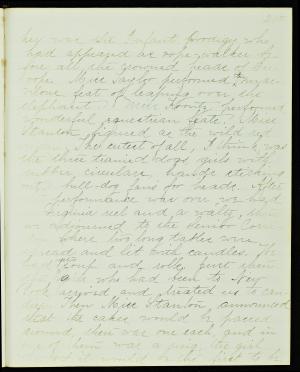 key was the Infant prodigy who
had appeared as rope-walker be
fore all the crowned heads of Eu
rope. Miss Taylor performed
feat of leaping over the
elephant. Miss performed
wonderful equestrian feats. Miss
Stanton figured as the wild
The cutest of all, I think was
the three trained dogs girls with
rubber circulars, hands sticking
out, bull-dog fans for heads. After
performance was over we had
Virginia reel and a waltz, then
we adjourned to the Senior Corri
dor where two long tables were
spread and lit with candles. We
soup and rolls,
who had been to
look and treated us to can
dy. Then Miss Stanton, announced
that the cakes would be passed
around, there was one each, and in
one of them was a ring, the girl
would be the first to be